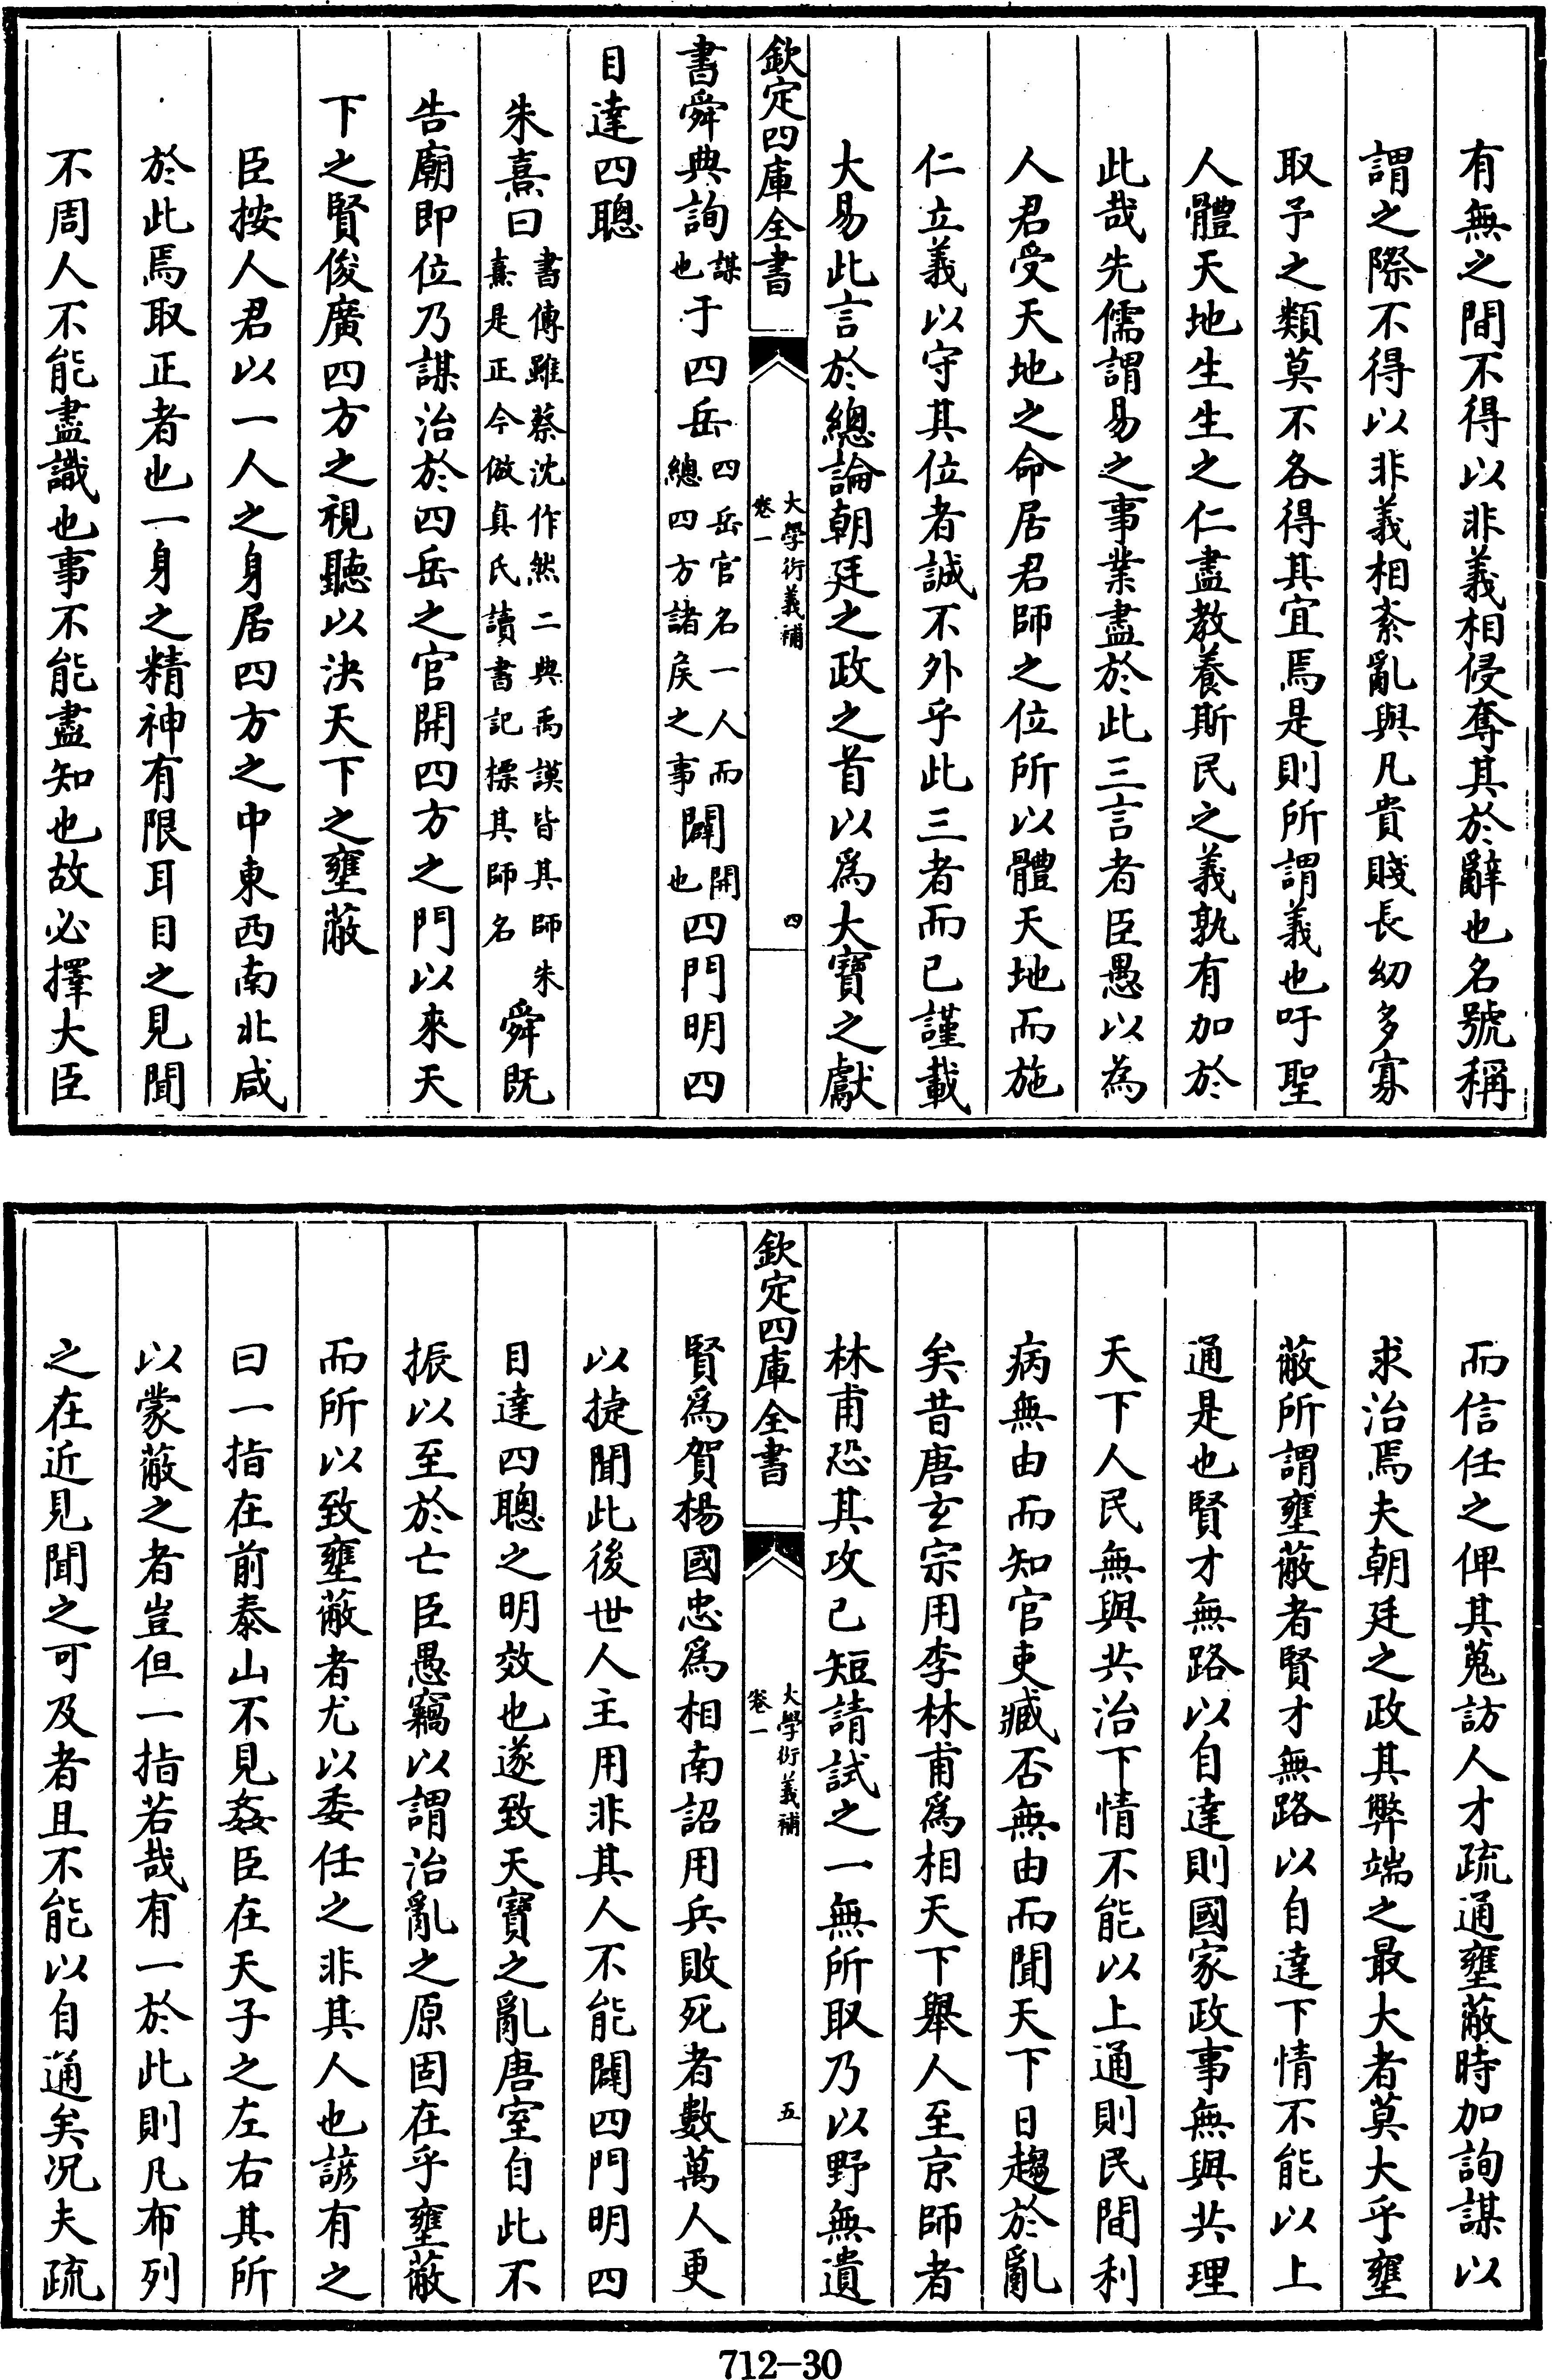 有無之間不得以非義相侵奪其於辭也名號稱
謂之際不得以非義相紊亂與凡貴賤長幼多寡
取予之類莫不各得其宜焉是則所謂義也吁聖
人體天地生生之仁盡教養斯民之義孰有加於
此哉先儒謂易之事業盡於此三言者臣愚以為
人君受天地之命居君師之位所以體天地而施
仁立義以守其位者誠不外乎此三者而已謹載
大易此言於總論朝廷之政之首以爲大寶之獻
欽定四庫全書
大學衍義補
卷一
四
書舜典詢謀也于四岳四岳官名一人而總四方諸侯之事闢開也四門明四
目達四聰
朱熹曰書傳雖蔡沈作然二典禹謨皆其師朱熹是正今倣真氏讀書記標其師名舜既
告廟即位乃謀治於四岳之官開四方之門以來天
下之賢俊廣四方之視聽以決天下之壅蔽
臣按人君以一人之身居四方之中東西南北咸
於此焉取正者也一身之精神有限耳目之見聞
不周人不能盡識也事不能盡知也故必擇大臣
而信任之俾其蒐訪人才疏通壅蔽時加詢謀以
求治焉夫朝廷之政其弊端之最大者莫大乎壅
蔽所謂壅蔽者賢才無路以自達下情不能以上
通是也賢才無路以自達則國家政事無與共理
天下人民無與共治下情不能以上通則民間利
病無由而知官吏臧否無由而聞天下日趨於亂
矣昔唐玄宗用李林甫爲相天下舉人至京師者
林甫恐其攻己短請試之一無所取乃以野無遺
欽定四庫全書
大學衍義補
卷一
五
賢爲賀楊國忠爲相南詔用兵敗死者數萬人更
以捷聞此後世人主用非其人不能闢四門明四
目達四聰之明效也遂致天寶之亂唐室自此不
振以至於亡臣愚竊以謂治亂之原固在乎壅蔽
而所以致壅蔽者尤以委任之非其人也諺有之
曰一指在前泰山不見姦臣在天子之左右其所
以蒙蔽之者豈但一指若哉有一於此則凡布列
之在近見聞之可及者且不能以自通矣况夫疏
712-30